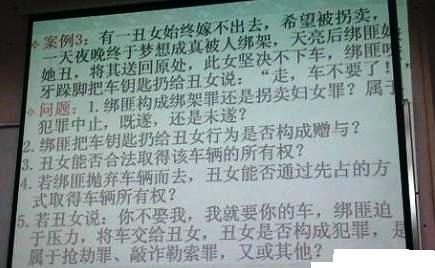 案例3:有一丑女始终嫁不出去,希望被拐卖,
一天夜晚终于梦想成真被人绑架,天亮后绑匪
她丑,将其送回原处,此女坚决不下车,绑匪
牙跺脚把车钥匙扔给丑女说:“走,车不要了!
问题:1.绑匪构成绑架罪还是拐卖妇女罪?属于
犯罪中止,既遂,还是未遂?
2.绑匪把车钥匙扔给丑女行为是否构成赠与?
3.丑女能否合法取得该车辆的所有权?
4.若绑匪抛弃车辆而去,丑女能否通过先占的方
式取得车辆所有权?
5.若丑女说:你不娶我,我就要你的车,绑匪迫
于压力,将车交给丑女,丑女是否构成犯罪,是
属于抢劫罪、敲诈勒索罪,又或其他?